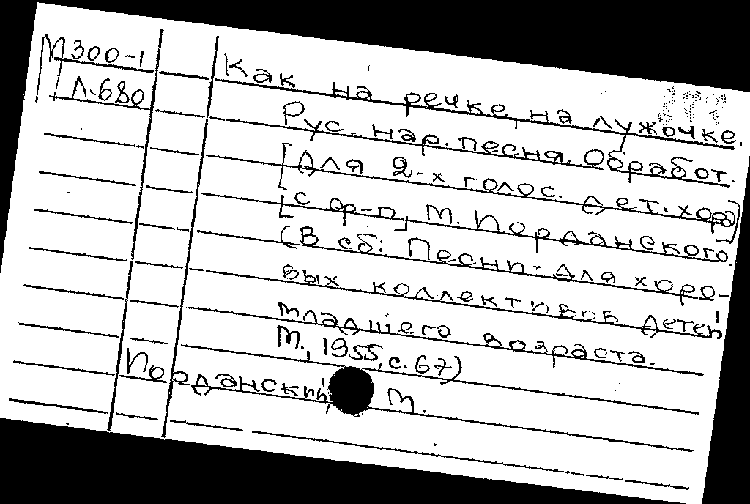 М300-1
Л.680
Как на речке, на лужочке.
Рус. нар. песня. Обработ.
[для 2-х голос. дет. хора]
[с ф-п] М. Иорданского.
(В сб: Песни для хоро-
вых коллективов детей
младшего возраста.
М., 1955, с. 67)
Иорданский, М.